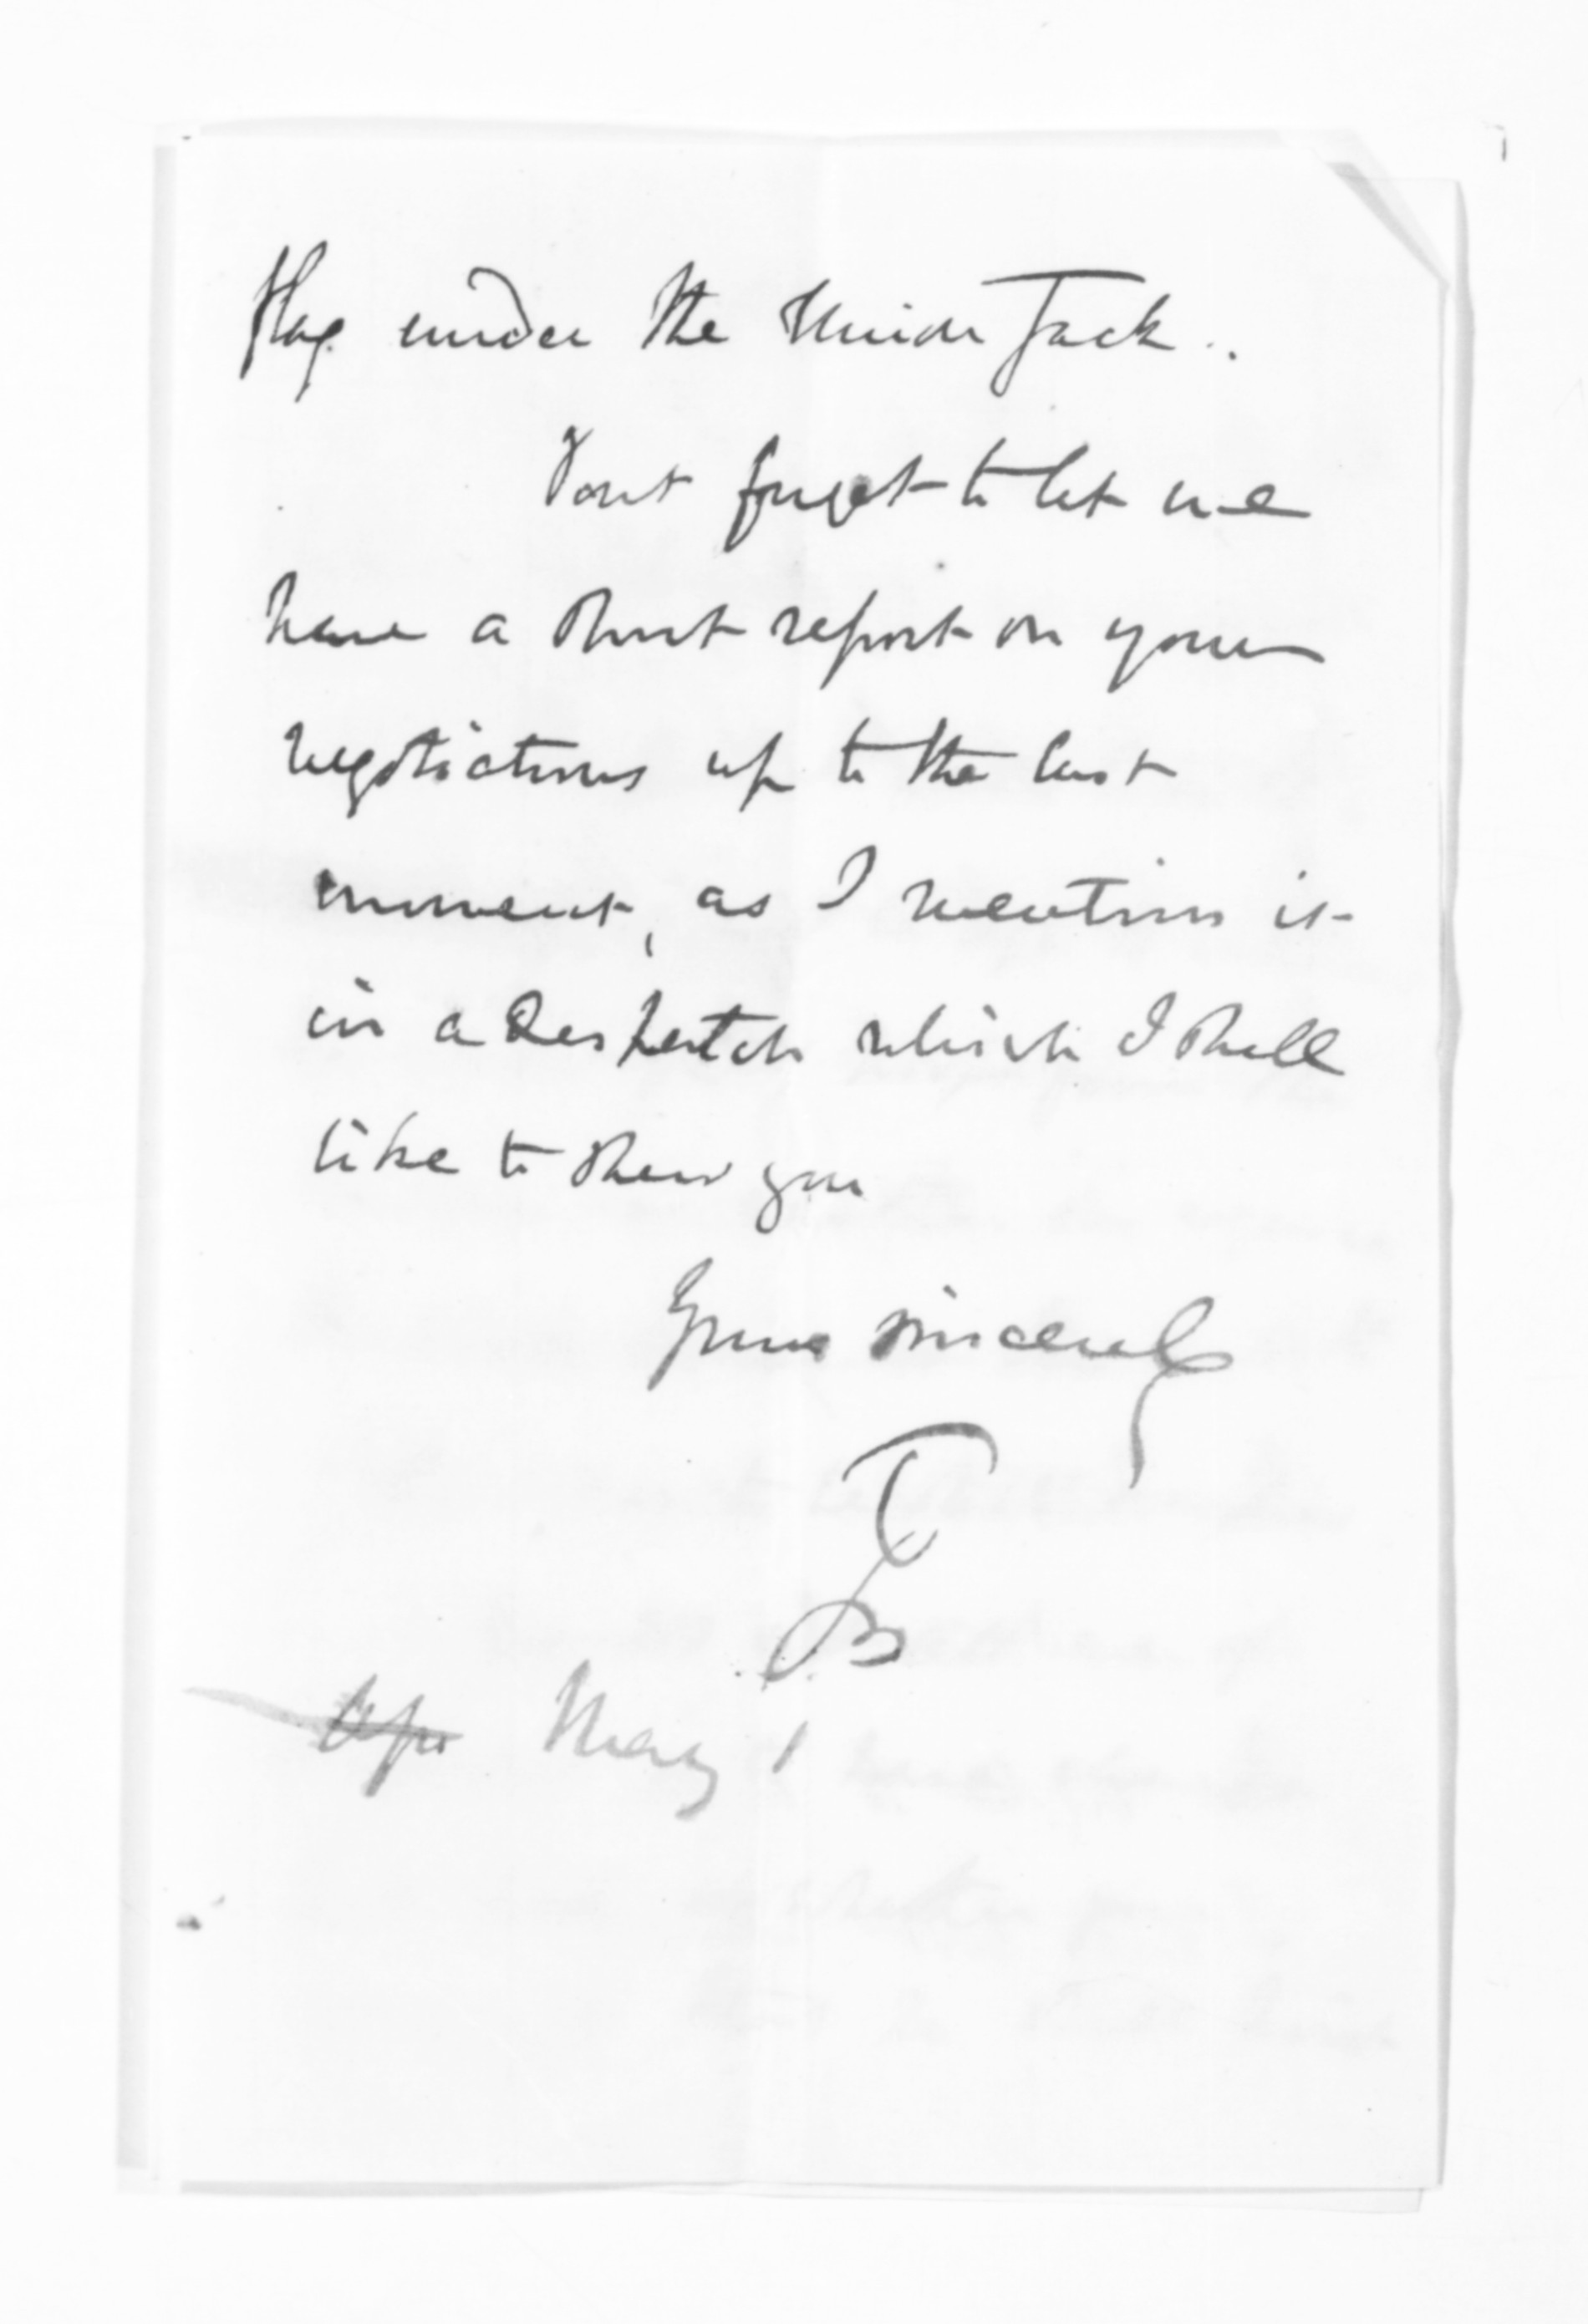 flag under the Union Jack..
Dont forget to let me
have a short report on your
negotiations up to the last
moment, as I mention it
in a despatch which I shall
like to shew you
Yours sincerely
TGB
Apr May 1